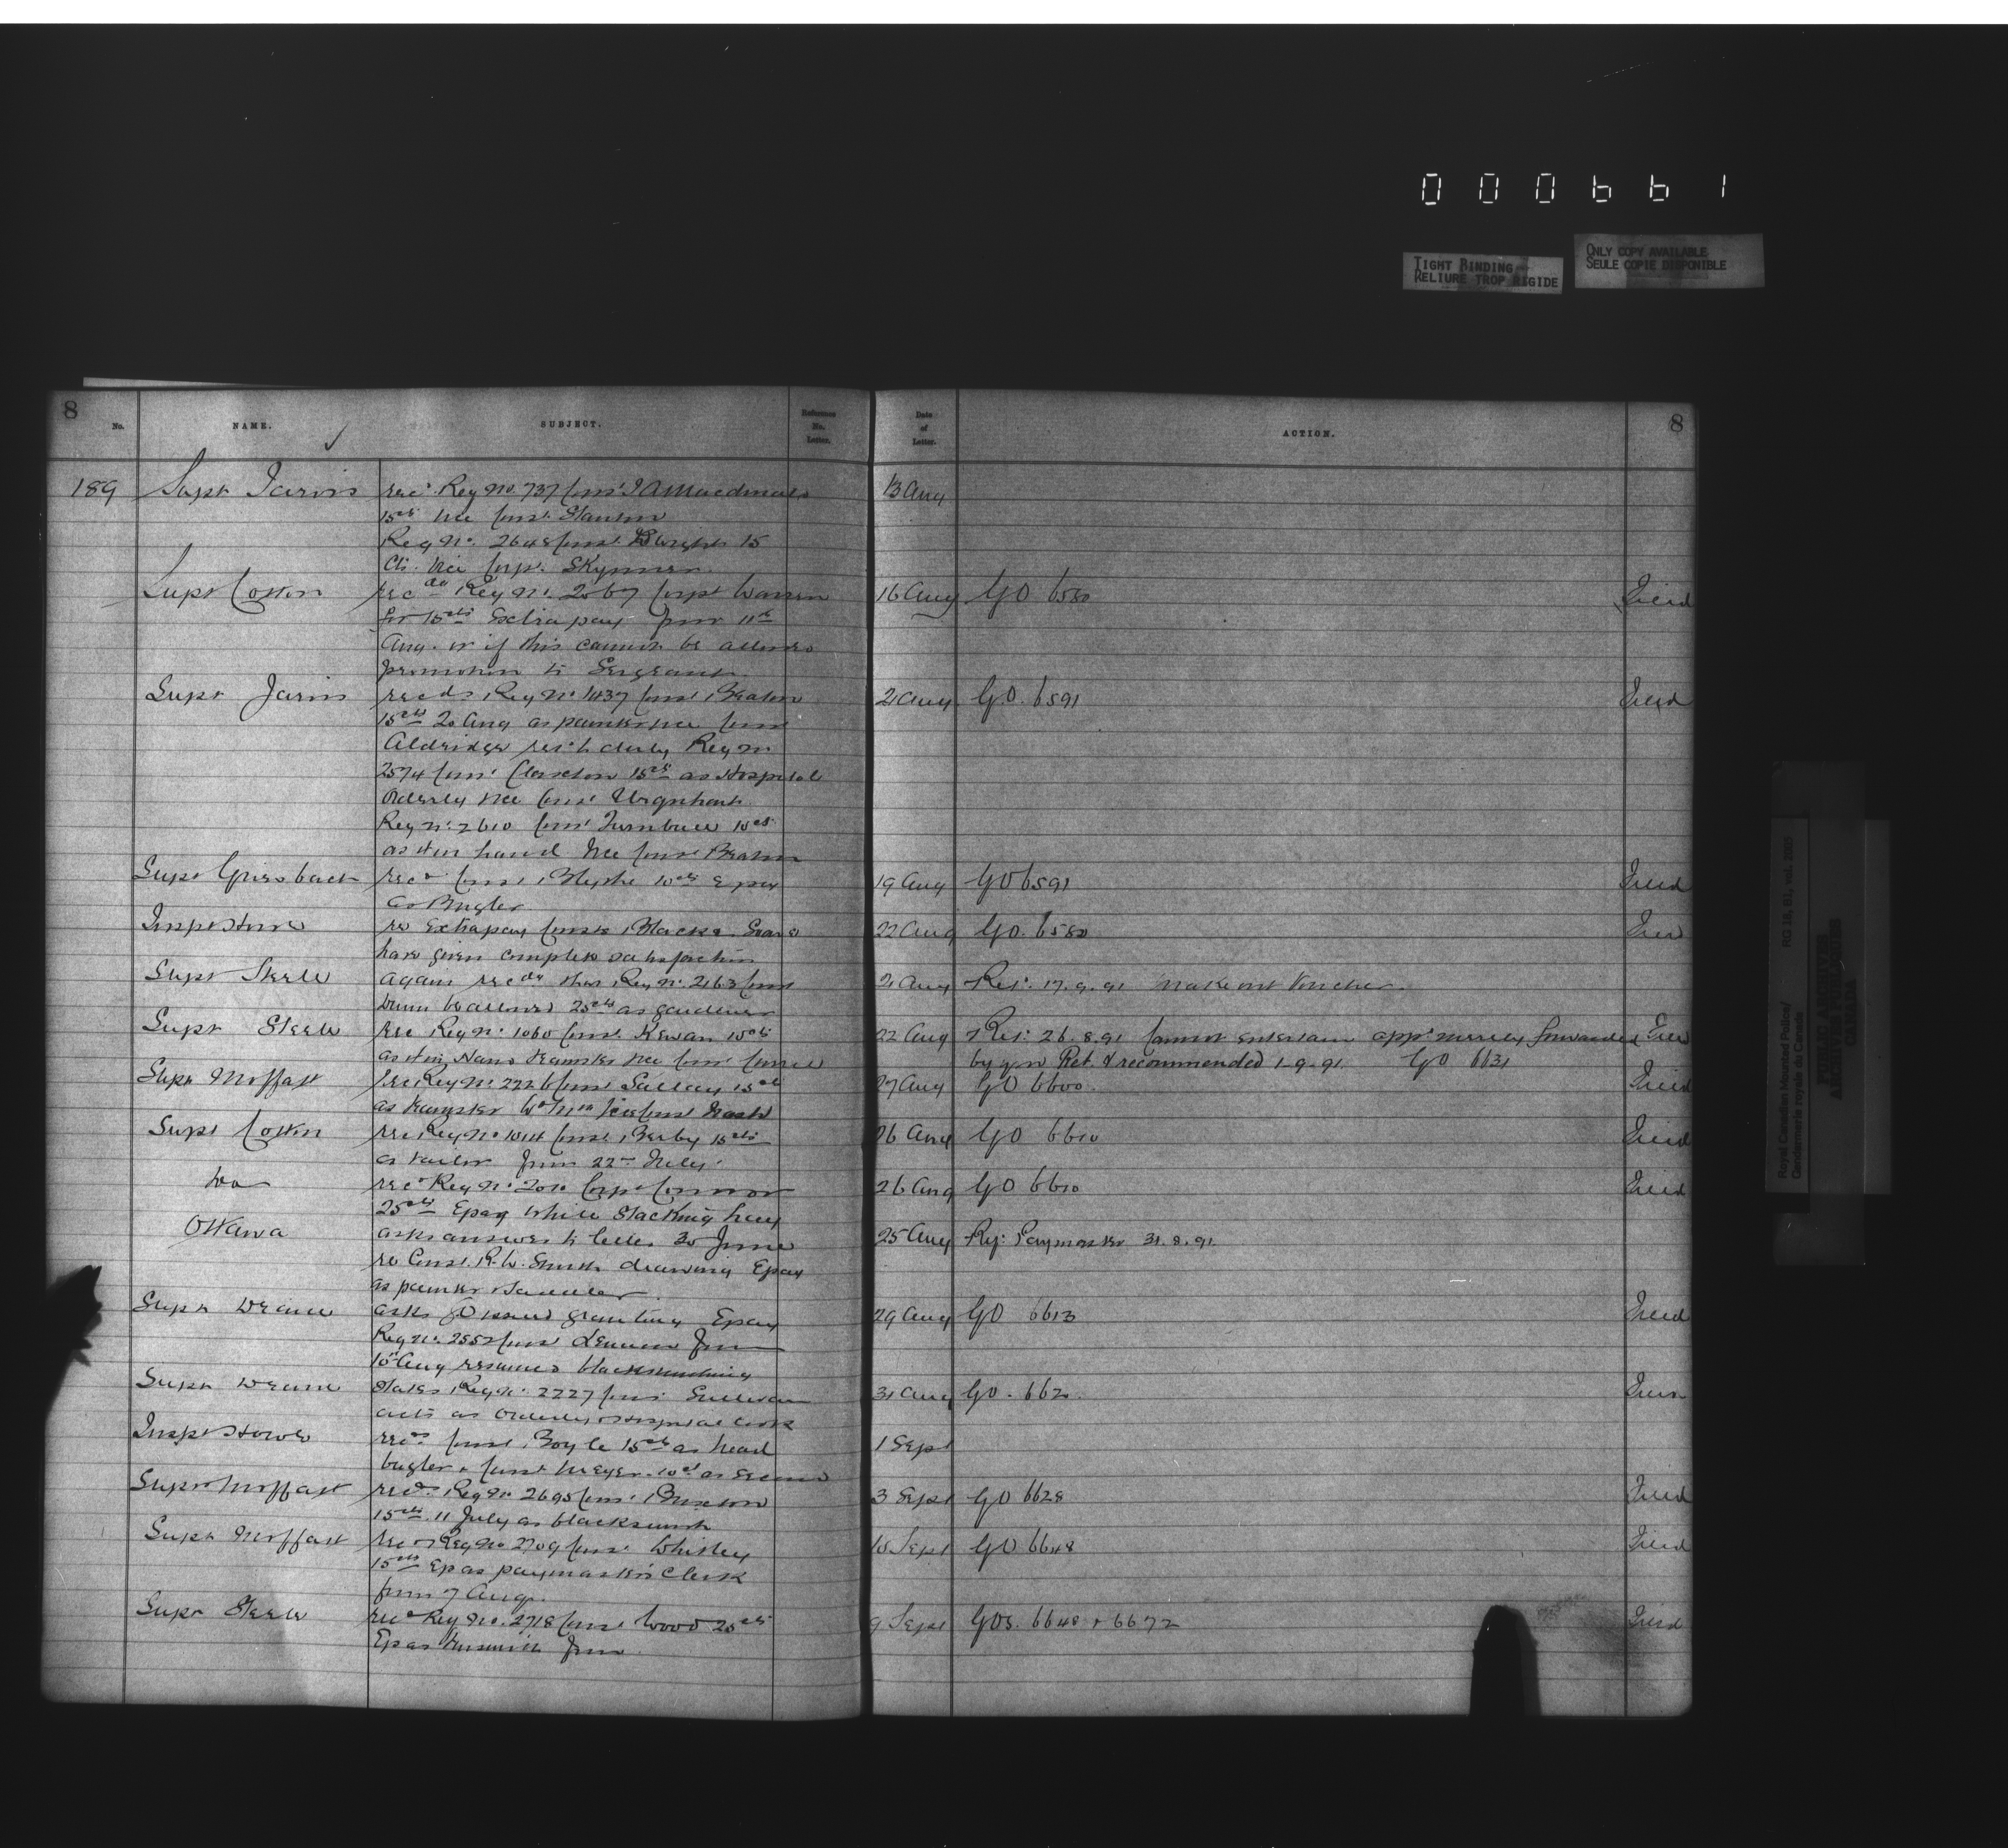 000661
TIGHT BINDING
RELIURE TROP RIGIDE
ONLY COPY AVAILABLE
SEULE COPIE DISPONIBLE
8
No.
NAME.
SUBJECT.
Reference
No.
Letter.
Date
of
Letter.
ACTION.
8
189 Supt Jarvis rec. Reg No. 737 Const J A Macdonald 13 Aug
15cts vice Const. Stanton
Reg No. 2648 Const. Wright 15
cts. vice Corp. Skynner
Supt Cotton rec ds Reg No. 2067 Corpl Warren 16 Aug GO 6580
for 15cts Extra pay from 11th
Aug. or if this cannot be allowed
promotion to Sergeant
Supt Jarvis recds Reg No. 1137 Const Beaton 21 Aug G.O. 6591
15cts 20 Aug as painter vice Const
Aldridge ret. to duty Reg No
2574 Const. Claxton 15cts as Hospital
Orderly vice Const Urquhart
Reg No. 2610 Const Turnbull 15cts
as 4 in hand vice Const Beaton
Supt Griesbach recd Const Blythe 10cts Epay 19 Aug GO 6591
as Bugler
Insp Howe re Extra pay Consts Black & 22 Aug GO. 6580
have given complete satisfaction
Supt Steele again recds that Reg No. 2163 Const 21 Aug Ret. 17.9.91 make out Voucher.
Dunn be allowed 25cts as gardener
Supt Steele rec Reg No. 1060 Const. Kewan 15cts 22 Aug Ret. 26.8.91 Cannot entertain appn merely forwarded
as 4 in Hand teamster vice Const
by you Ret & recommended 1-9-91. GO 6631
Supt Moffatt rec Reg No. 2226 Const 15cts 27 Aug GO 6600
as teamster vice Const Nash
Supt Cotton rec Reg No. 1014 Const. Berby 15cts 26 Aug GO 6610
as tailor from 22nd July.
Do rec. Reg No. 2010 Corpl Connor 26 Aug GO 6610
25cts Epay while stacking hay
Ottawa asks answer to letter 30 June 25 Aug Ref: Paymaster 31.8.91
re Const. R.W. Smith drawing Epay
as painter &
Supt Deane asks GO issued granting Epay 29 Aug GO 6613
Reg No. 2552 Const Lennon from
10th Aug resumed blacksmithing
Supt Deane states Reg No. 2227 Const. Sullivan 31 Aug GO. 6620
acts as Orderly & Hospital Cook
Insp Howe recds Const. Boyle 15cts as head 1 Sept
bugler & Const Meyer. 10cts as second
Supt Moffatt recd. Reg No. 2695 Const. Buxton 3 Sept GO 6628
15cts. 11 July as blacksmith
Supt Moffatt rec Reg No 2709 Const. Whitley 10 Sept GO 6648
15cts Ep as paymaster's Clerk
from 7 Aug.
Supt Steele recd Reg No. 2718 Const Wood 25cts 9 Sept GOs. 6648 & 6672
Ep as tinsmith from
Royal Canadian Mounted Police/
Gendarmerie royale du Canada
RG 18, B1, vol. 2005
PUBLIC ARCHIVES
ARCHIVES PUBLIQUES
CANADA